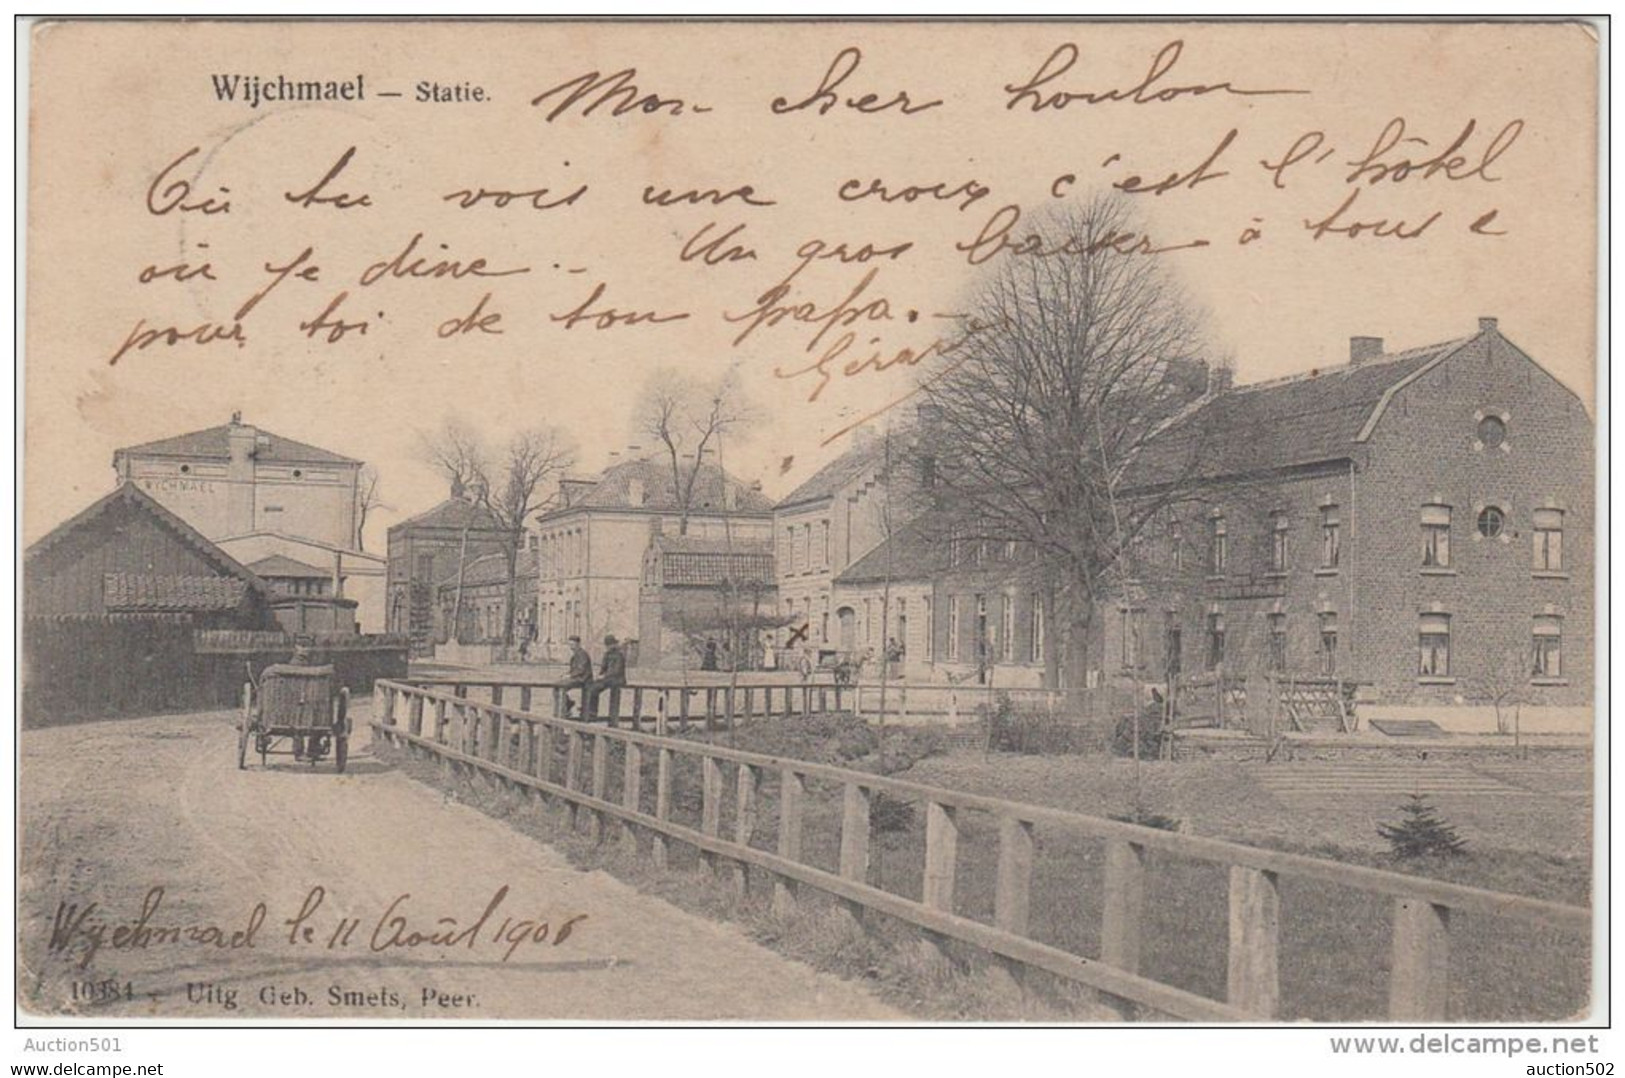 Wijchmael — Statie.
Mon cher houlon
Où tu vois une croix c'est l'hôtel
où je dine.- Un gros baiser à tous e
pour toi de ton papa.-
Gérard
WYCHMAEL
Wychmael le 11 Août 1906
10384 - Uitg Geb. Smets, Peer.
Auction501
www.delcampe.net
auction501
auction502